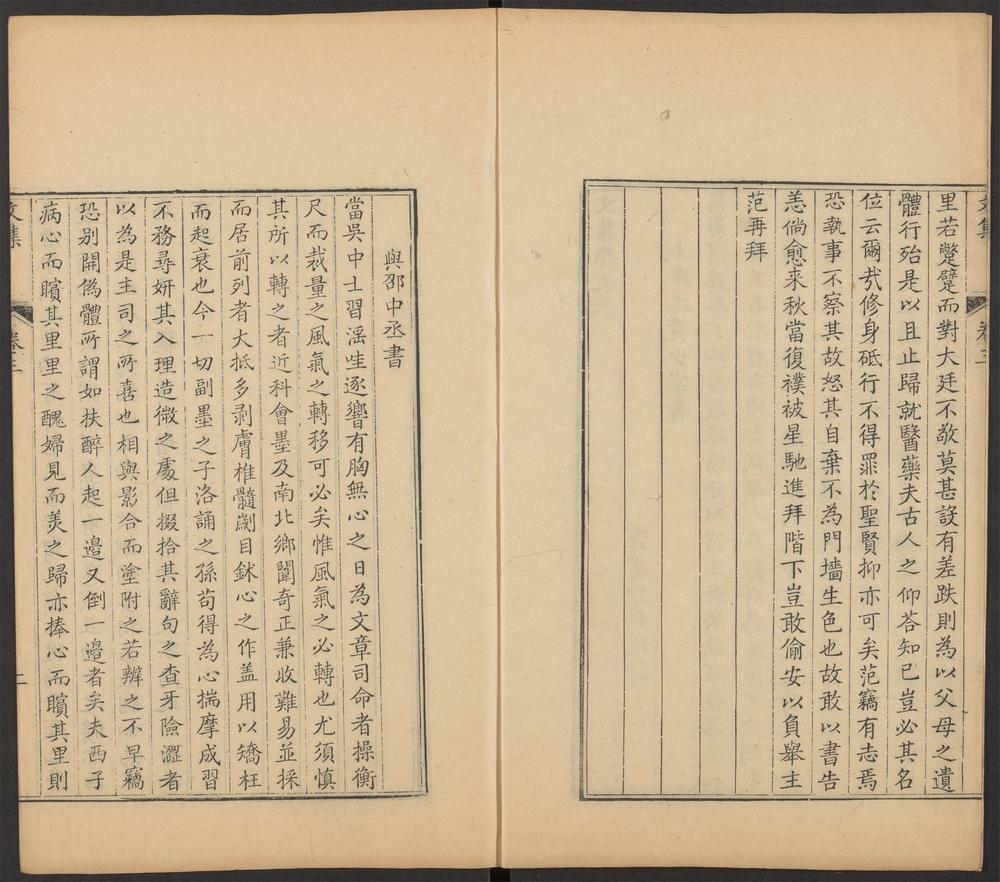 文集
卷三
里若蹩躄而對大廷不敬莫甚設有差跌則為以父母之遺
體行殆是以且止歸就醫藥夫古人之仰荅知已豈必其名
位云爾㢤修身砥行不得罪於聖賢抑亦可矣范竊有志焉
恐執事不察其故怒其自棄不為門墻生色也故敢以書告
恙倘愈來秋當復襆被星馳進拜階下豈敢偷安以負舉主
范再拜
與邵中丞書
當吳中士習滛哇逐響有胸無心之日為文章司命者操衡
尺而裁量之風氣之轉移可必矣惟風氣之必轉也尤須慎
其所以轉之者近科會墨及南北鄉闈奇正兼收難易並採
而居前列者大抵多剥膚椎髓劌目鉥心之作盖用以矯枉
而起衰也今一切副墨之子洛誦之孫苟得為心揣摩成習
不務尋妍其入理造微之處但掇拾其辭句之查牙險澀者
以為是主司之所喜也相與影合而塗附之若辨之不早竊
恐别開偽體所謂如扶醉人起一邉又倒一邉者矣夫西子
病心而矉其里里之醜婦見而羙之歸亦捧心而矉其里則
文集
卷三
二